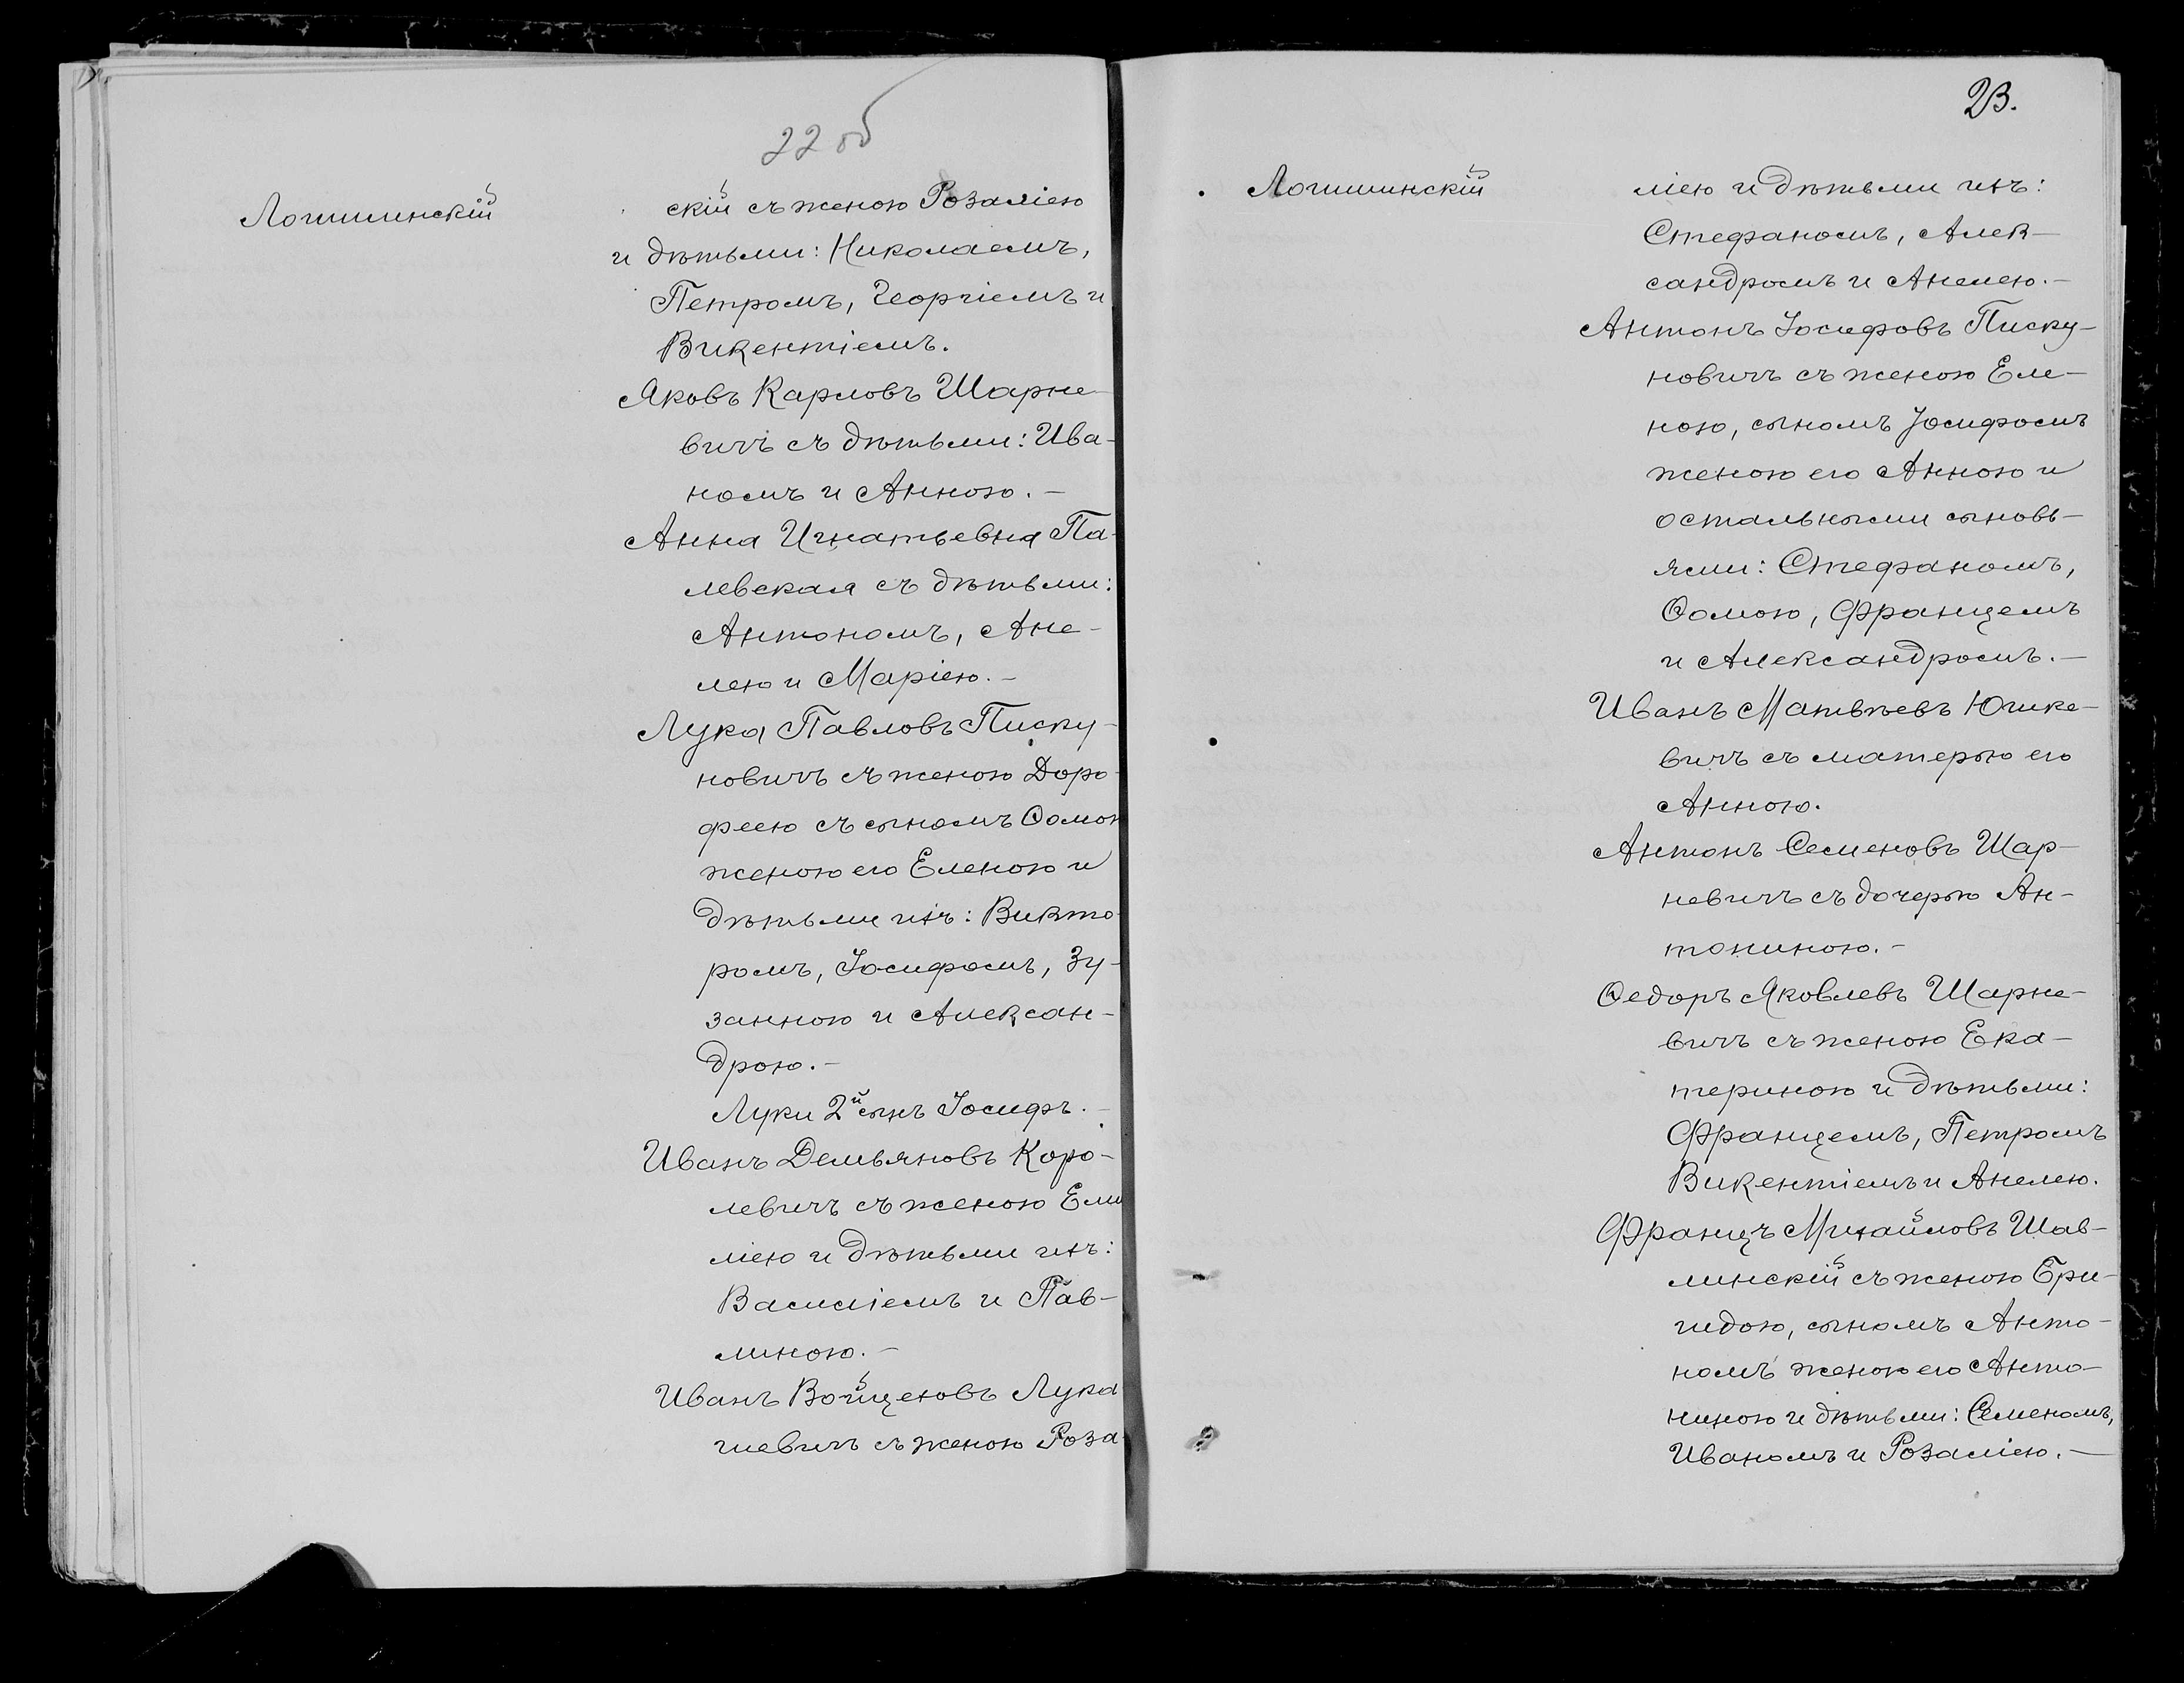 22 об
Логишинскій
скій съ женою Розаліею
и дѣтьми: Николаемъ,
Петромъ, Георгіемъ и
Викентіемъ.
Яковъ Карловъ Шарне-
вичъ съ дѣтьми: Ива-
номъ и Анною. —
Анна Игнатьевна Па-
левская съ дѣтьми:
Антономъ, Ане-
лею и Маріею. —
Лука Павловъ Писку-
новичъ съ женою Доро-
феею съ сыномъ Ѳомою
женою его Еленою и
дѣтьми ихъ: Викто-
ромъ, Іосифомъ, Зу-
занною и Алексан-
дрою. —
Луки 2й сынъ Іосифъ. —
Иванъ Демьяновъ Коро-
левичъ съ женою Еми
ліею и дѣтьми ихъ:
Василіемъ и Пав-
линою. —
Иванъ Войцеховъ Лука
шевичъ съ женою Роза-
23.
Логишинскій
ліею и дѣтьми ихъ:
Стефаномъ, Алек-
сандромъ и Анелею. —
Антонъ Іосифовъ Писку-
новичъ съ женою Еле-
ною, сыномъ Іосифомъ
женою его Анною и
остальными сыновь-
ями: Стефаномъ,
Ѳомою, Францемъ
и Александромъ. —
Иванъ Матвѣевъ Юшке-
вичъ съ матерью его
Анною.
Антонъ Семеновъ Шар-
невичъ съ дочерью Ан-
тониною. —
Ѳедоръ Яковлевъ Шарне-
вичъ съ женою Ека-
териною и дѣтьми:
Францемъ, Петромъ
Викентіемъ и Анелею.
Францъ Михайловъ Шав-
линскій съ женою Бри-
гидою, сыномъ Анто-
номъ женою его Анто-
ниною и дѣтьми: Семеномъ,
Иваномъ и Розаліею. —